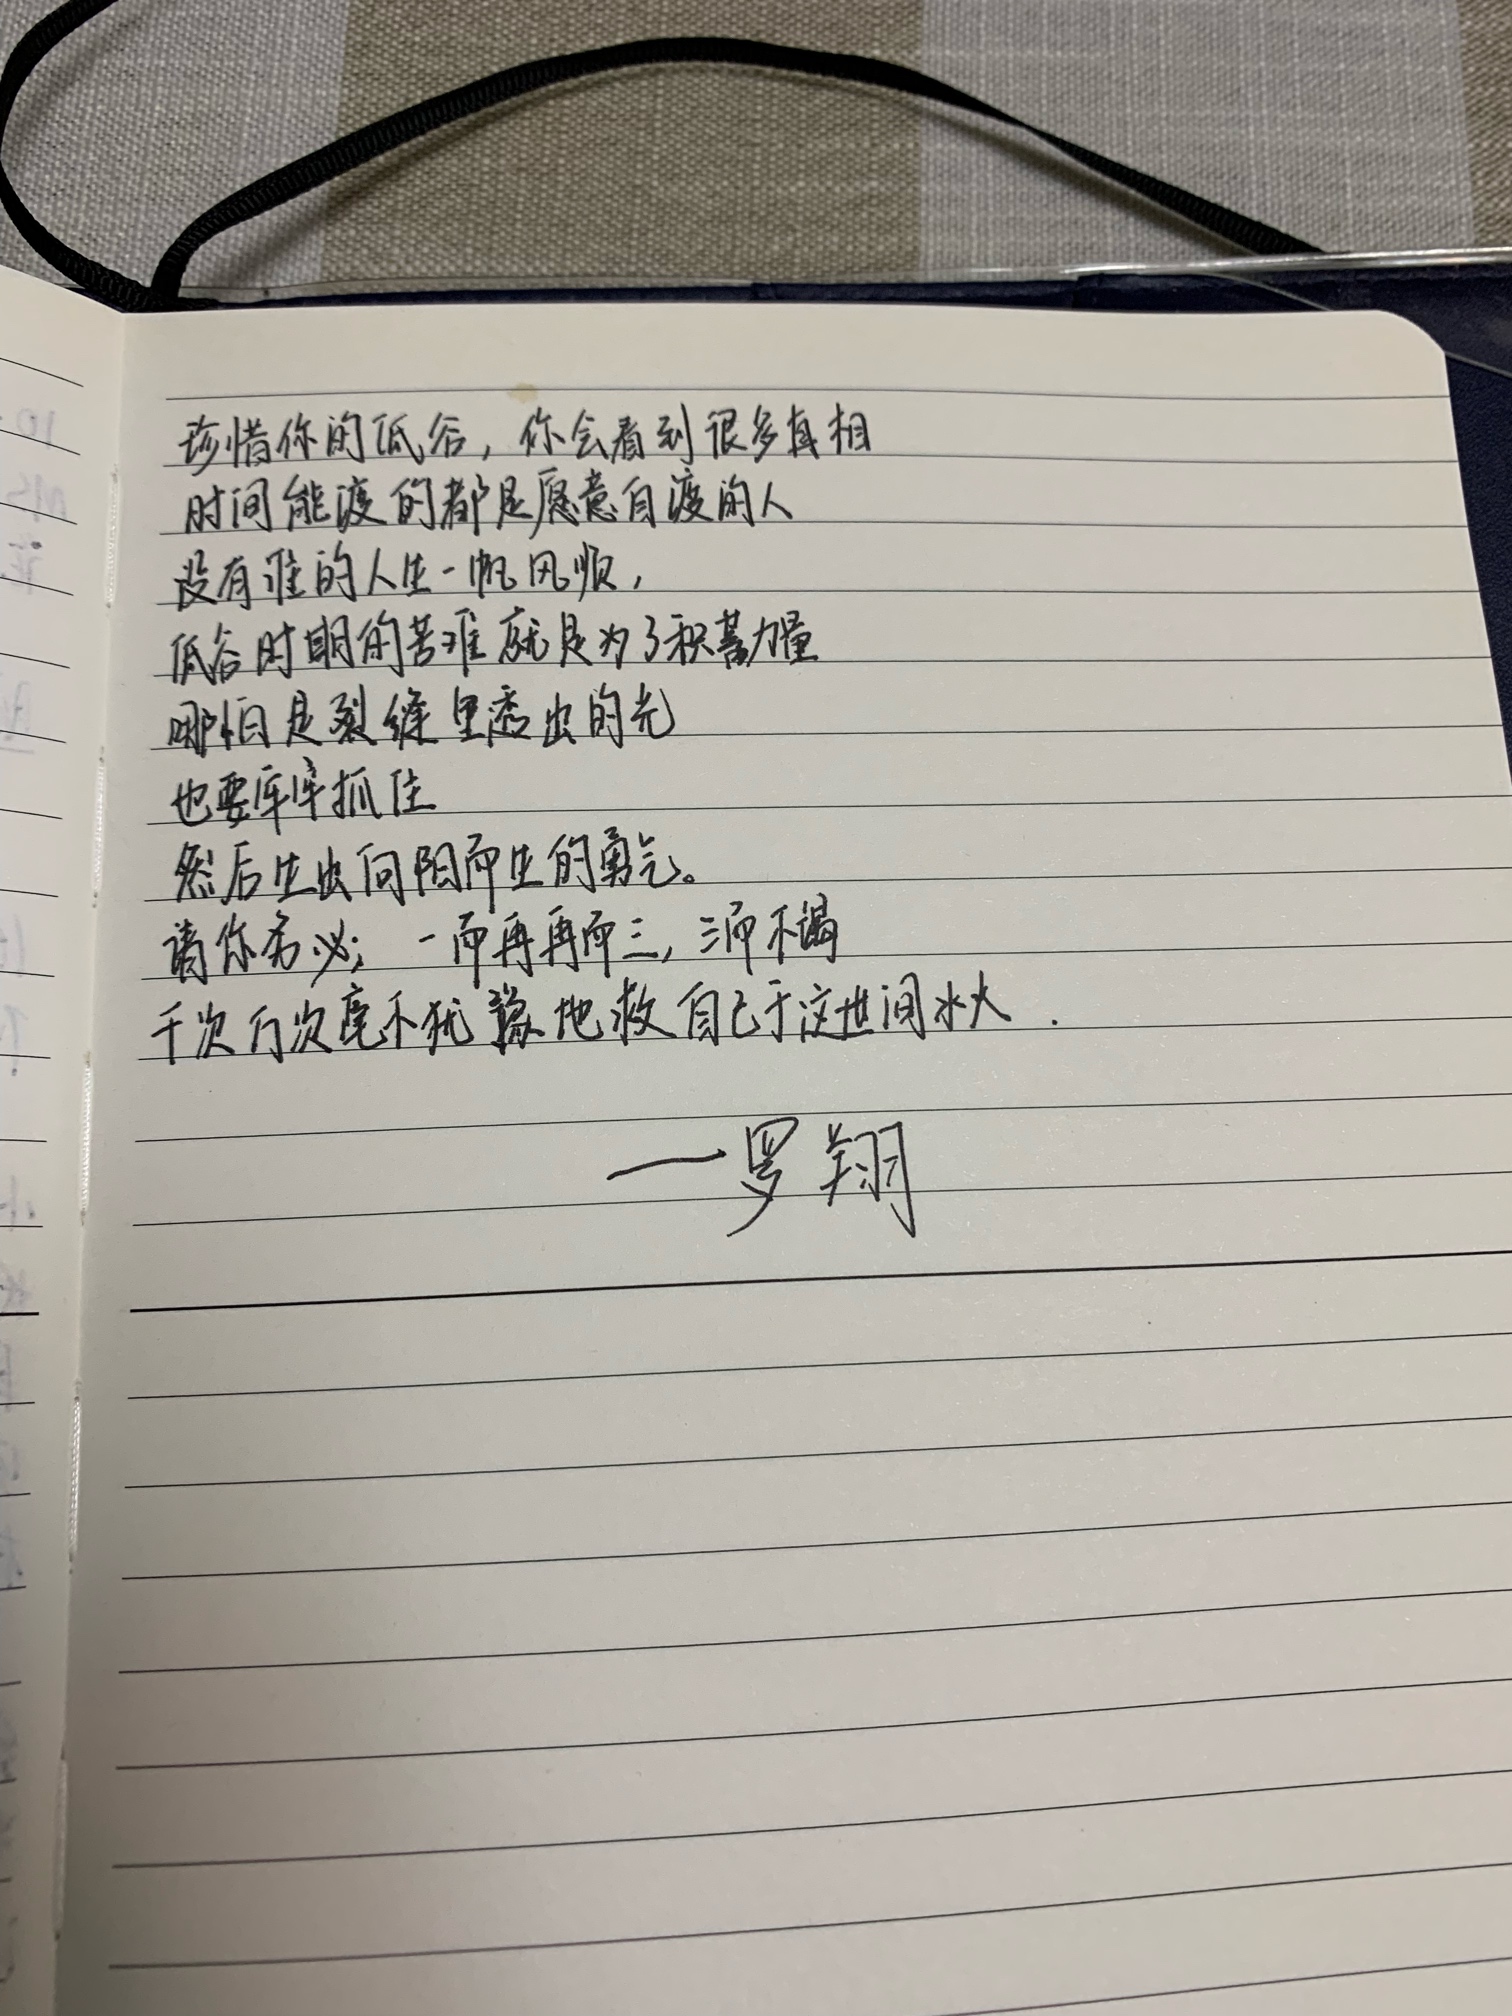 珍惜你的低谷，你会看到很多真相
时间能渡的都是愿意自渡的人
没有谁的人生一帆风顺，
低谷时期的苦难就是为了积蓄力量
哪怕是裂缝里透出的光
也要牢牢抓住
然后生出向阳而生的勇气。
请你务必；一而再再而三，三而不竭
千次万次毫不犹豫地救自己于这世间水火．
—罗翔